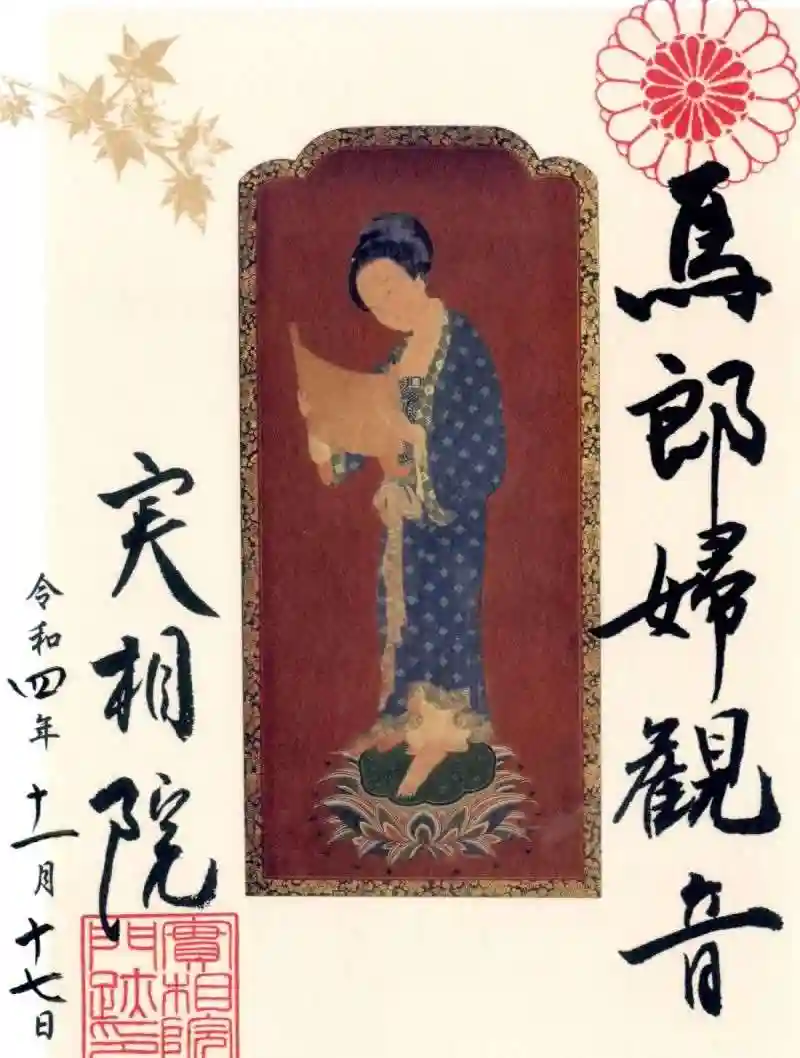 馬郎婦觀音
実相院
令和四年十一月十七日
實相院
門跡印